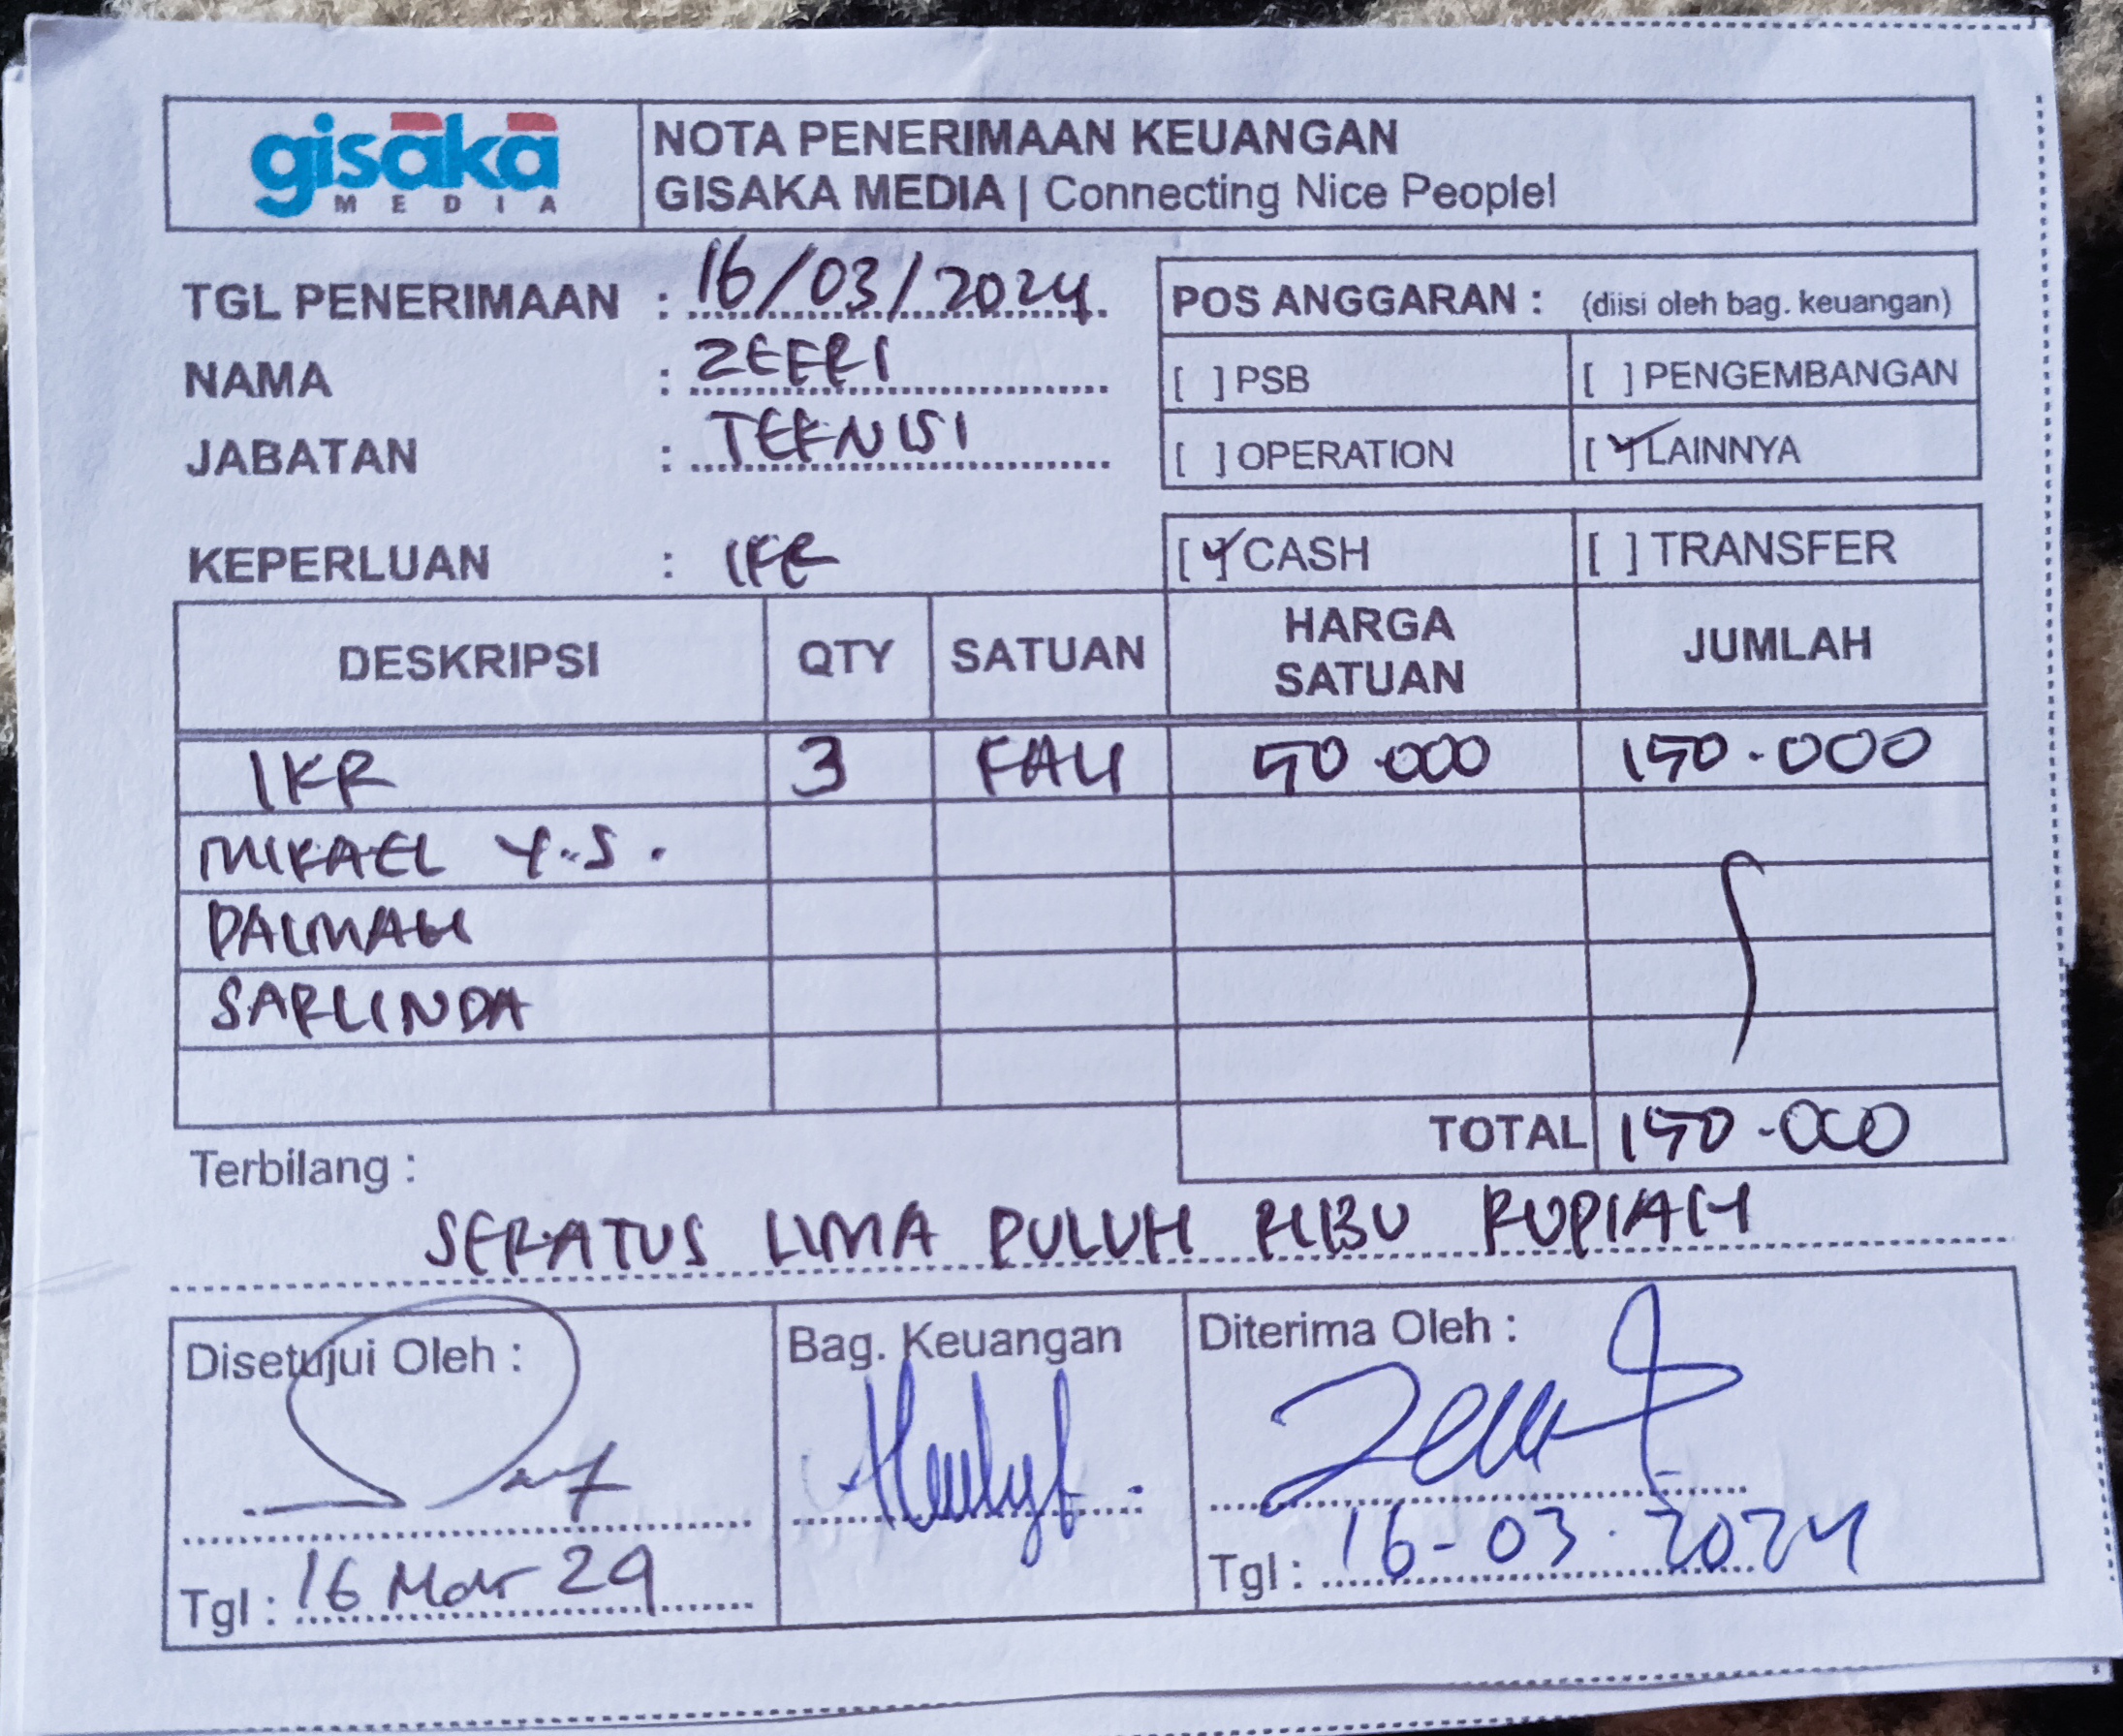 gisaka
MEDIA
NOTA PENERIMAAN KEUANGAN
GISAKA MEDIA | Connecting Nice People!
TGL PENERIMAAN : 16/03/2024
NAMA : ZEFRI
JABATAN : TEKNISI
POS ANGGARAN : (diisi oleh bag. keuangan)
[ ] PSB [ ] PENGEMBANGAN
[ ] OPERATION [✓] LAINNYA
KEPERLUAN : IKR
[✓] CASH [ ] TRANSFER
DESKRIPSI QTY SATUAN HARGA SATUAN JUMLAH
IKR 3 KALI 50.000 150.000
MIKAEL Y.S.
DALMAH
SARLINDA
TOTAL 150.000
Terbilang :
SERATUS LIMA PULUH RIBU RUPIAH
Disetujui Oleh : Bag. Keuangan Diterima Oleh :
Tgl : 16 Mar 24 Tgl : 16-03-2024